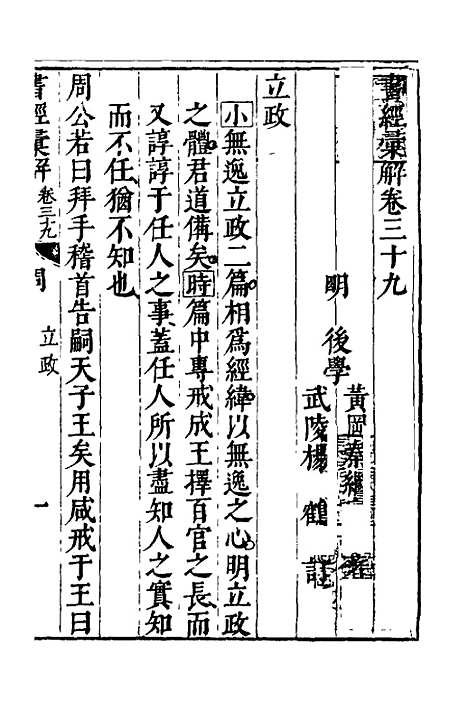 書經彙解卷三十九
明 後學 黃岡秦繼宗
武陵楊鶴 訂
立政
小無逸立政二篇相爲經緯以無逸之心明立政
之體君道備矣時篇中專戒成王擇百官之長而
又諄諄于任人之事蓋任人所以盡知人之實知
而不任猶不知也
周公若曰拜手稽首告嗣天子王矣用咸戒于王曰
書經彙解 卷三十九 周 立政 一